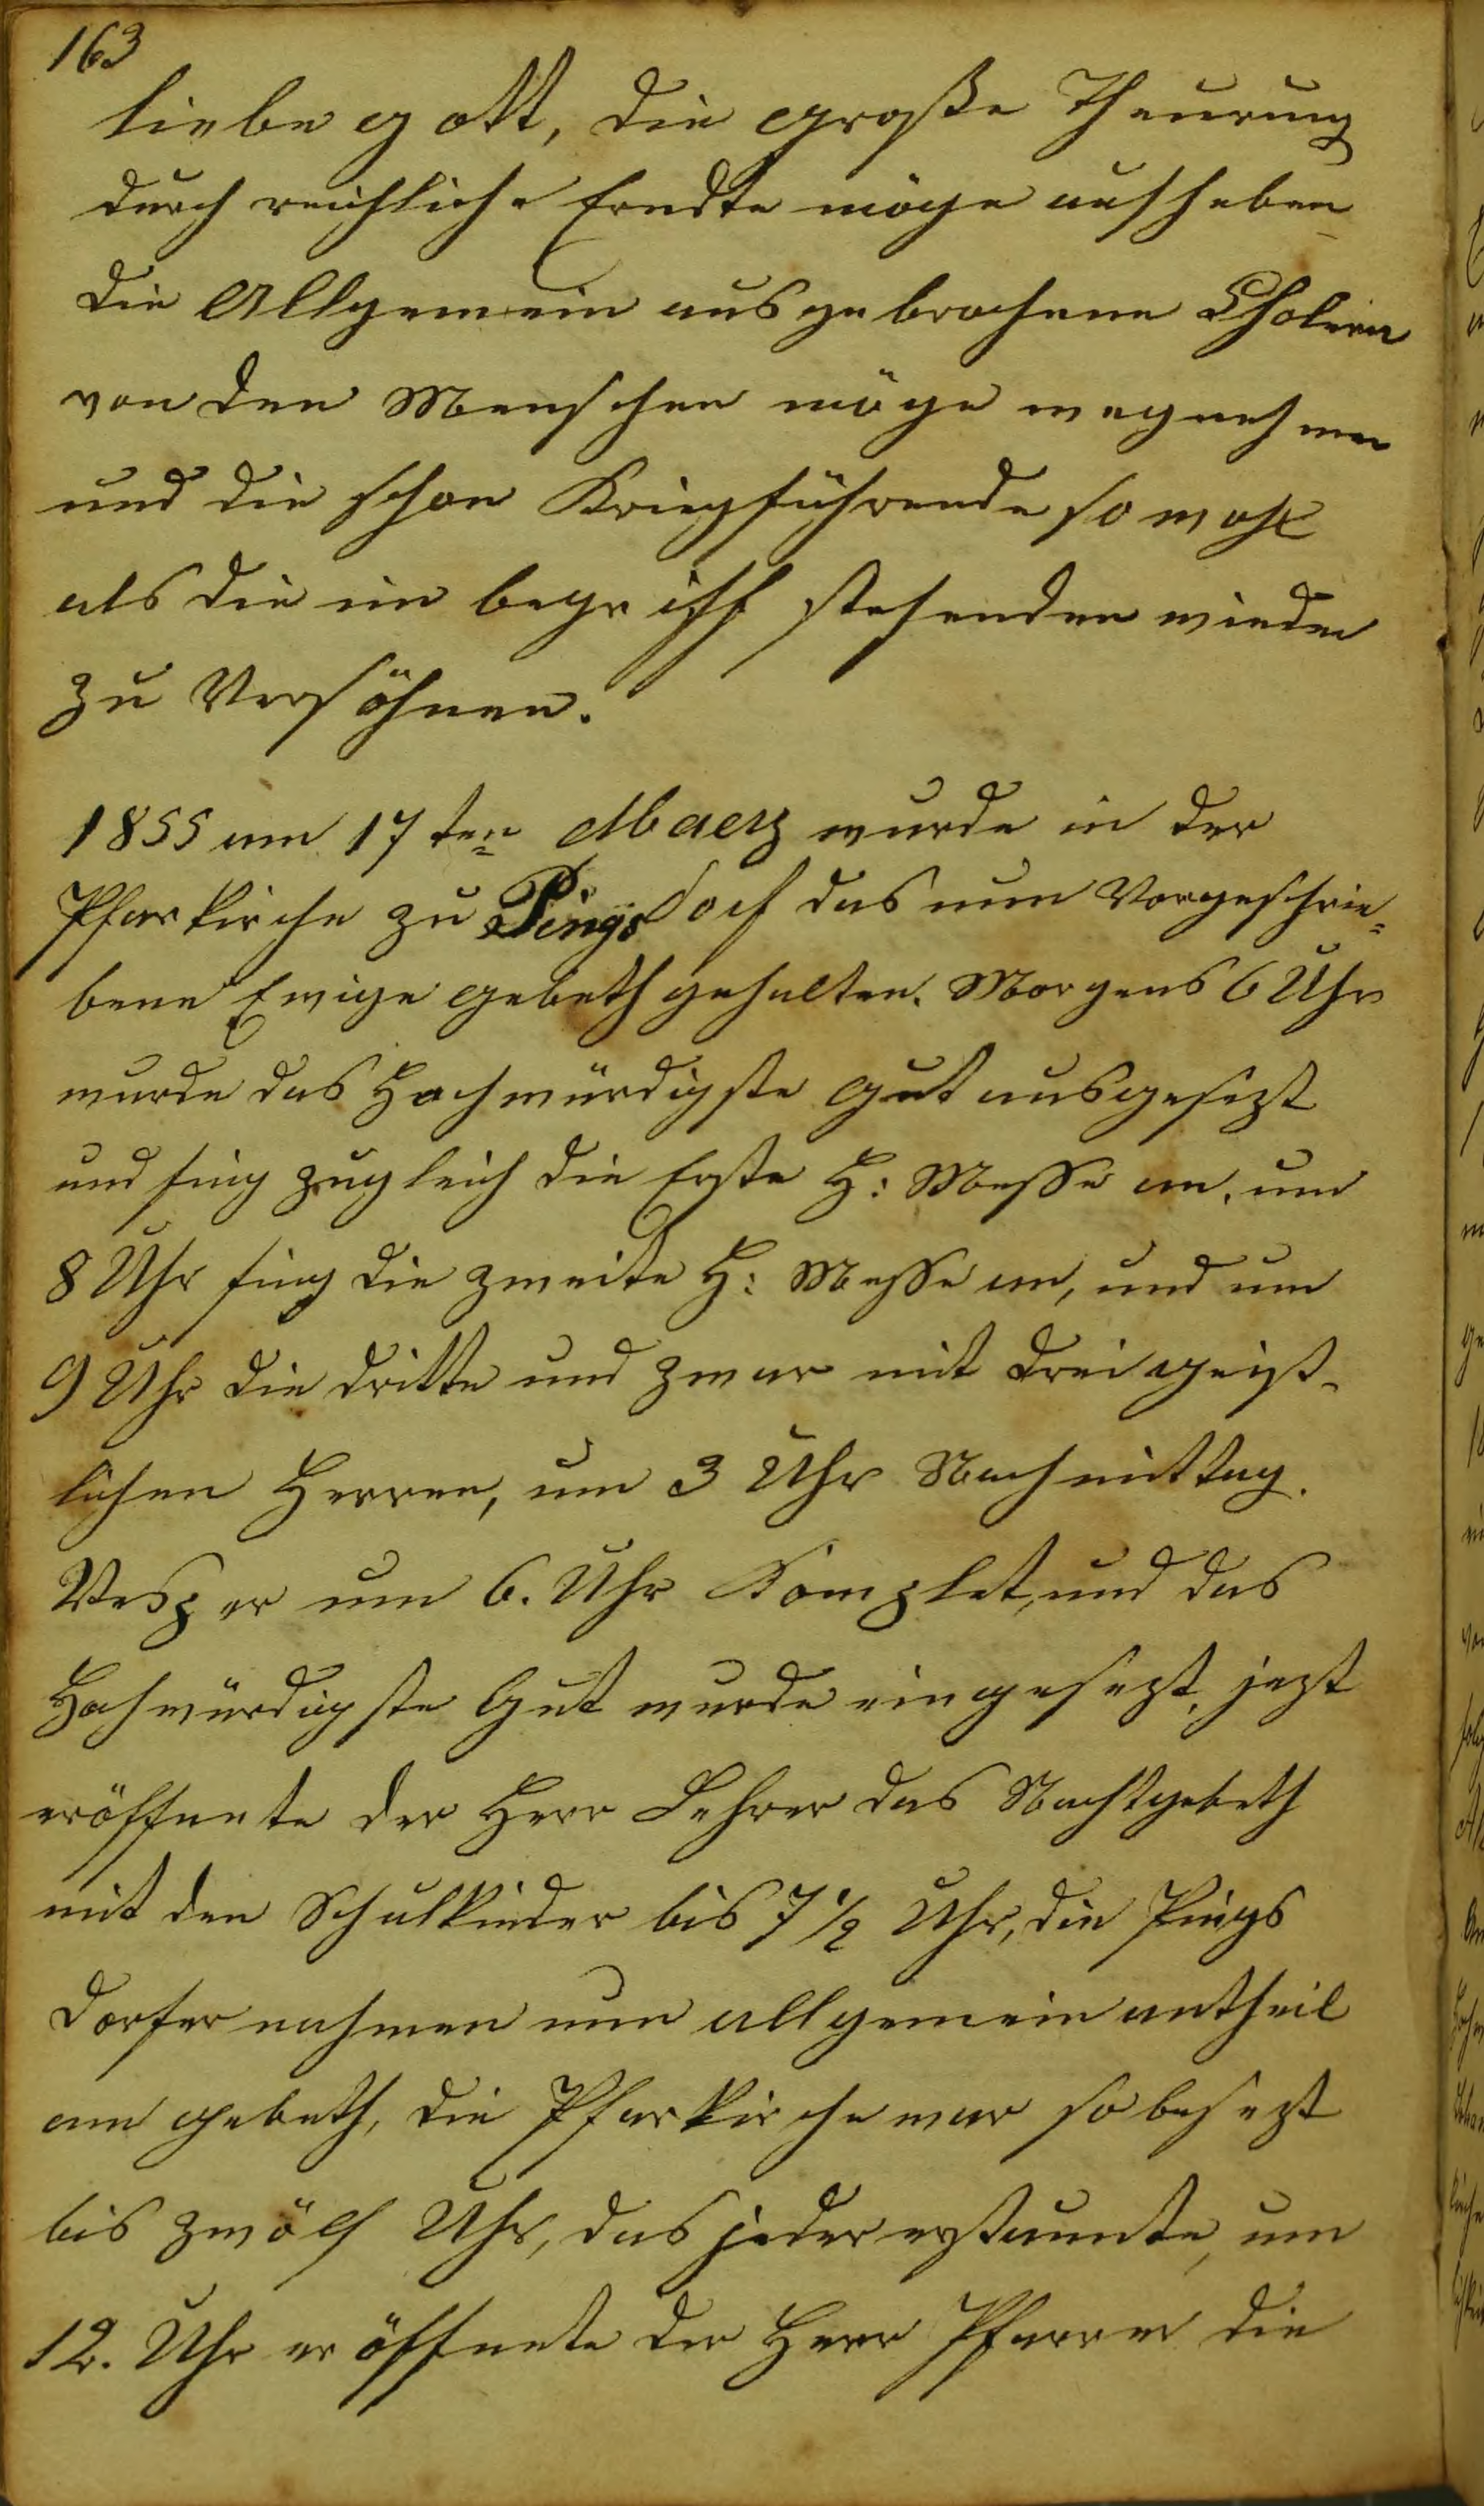 163
liebe gott, die große Theurung
durch reichliche Erndte möge aufheben
die Allgemein ausgebrochene Cholera
von den Menschen möge wegnehmen
und die schon Kriegführende so wohl
als die im begriff stehenden wieder
zu Versöhnen.
1855 am 17ten Maerz wurde in der
Pfarkirche zu Pingsdorf das nun Vorgeschrie=
bene Ewige gebeth gehalten. Morgens 6 Uhr
wurde das Hochwürdigste gut ausgesezt
und fing zugleich die Erste H: Messe an, um
8 Uhr fing die zweite H: Messe an, und um
9 Uhr die dritte und zwar mit drei geist-
lichen Herren, um 3 Uhr Nachmittag.
Vesper um 6. Uhr Komplet, und das
Hochwürdigste Gut wurde eingesezt, jezt
eröffnete der Herr Lehrer das Nachtgebeth
mit den Schulkinder bis 7 1/2 Uhr, die Pings
dorfer nahmen nun allgemein antheil
am gebeth, die Pfarkirche war so besezt
bis zwölf Uhr, das jeder erstaunte, um
12. Uhr eröffnete der Herr Pfarrer die